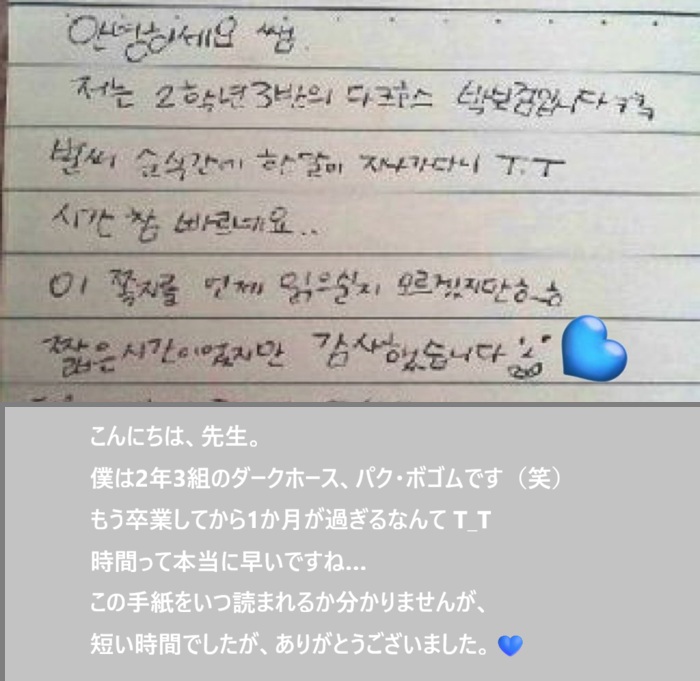 안녕하세요 쌤.
저는 2학년3반의 다크호스 박보검입니다ㅋㅋ
벌써 순식간에 한달이 지나가다니 T.T
시간 참 빠르네요..
이 쪽지를 언제 읽으실지 모르겠지만ㅎ_ㅎ
짧은시간이었지만 감사했습니다
こんにちは、先生。
僕は2年3組のダークホース、パク・ボゴムです（笑）
もう卒業してから1か月が過ぎるなんて T_T
時間って本当に早いですね...
この手紙をいつ読まれるか分かりませんが、
短い時間でしたが、ありがとうございました。💙